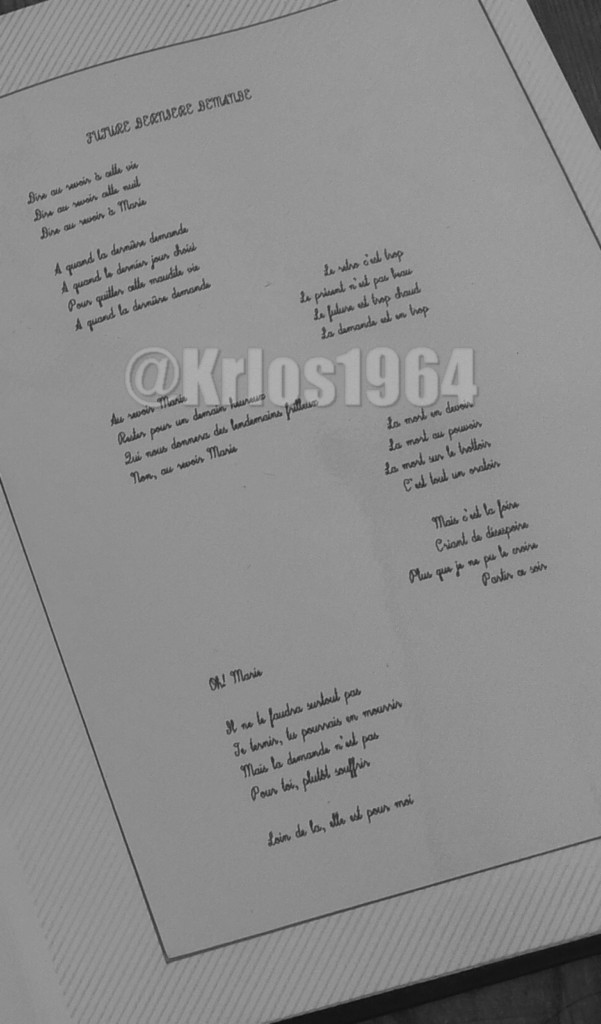 FUTURE DERNIERE DEMANDE
Dire au revoir à cette vie
Dire au revoir cette nuit
Dire au revoir à Marie
A quand la dernière demande
A quand le dernier jour choisi
Pour quitter cette maudite vie
A quand la dernière demande
Le retro c'est trop
Le présent n'est pas beau
Le future est trop chaud
La demande est en trop
@Krlos1964
Au revoir Marie
Rester pour un demain heureux
Qui nous donnera des lendemains frilleux
Non, au revoir Marie
La mort en devoir
La mort au pouvoir
La mort sur le trottoir
C'est tout un oratoir
Mais c'est la foire
Criant de désespoire
Plus que je ne pu le croire
Partir ce soir
Oh! Marie
Il ne te faudra surtout pas
Te ternir, tu pourrais en mourrir
Mais la demande n'est pas
Pour toi, plutôt souffrir
Loin de la, elle est pour moi